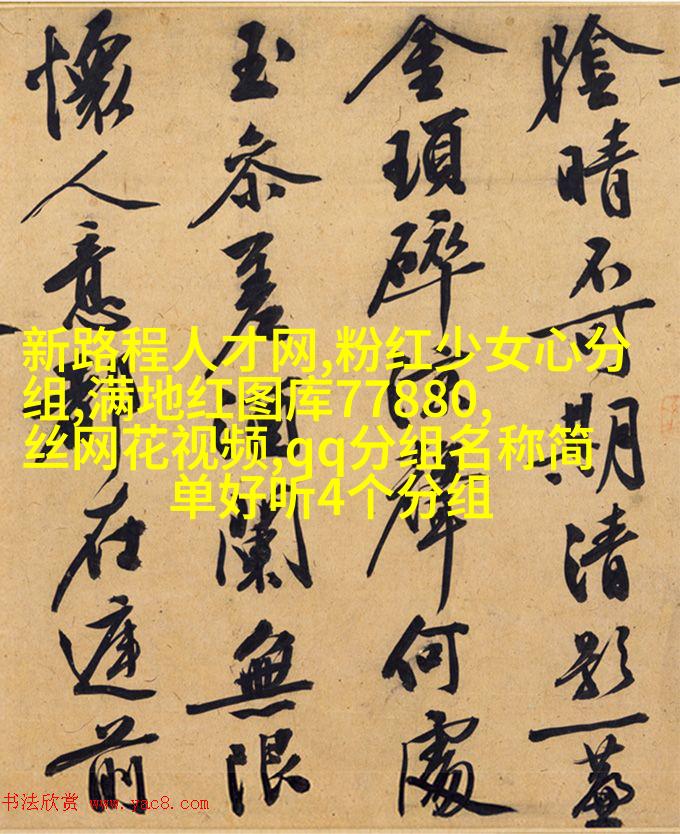 陰晴不可期清影一
金瑣碎聲何處
玉參差闌無限
懷人意在前
新路程人才网,粉红少女心分
组,满地红图库77880,
丝网花视频,qq分组名称简
单好听4个分组
书法欣赏 www.yac8.com